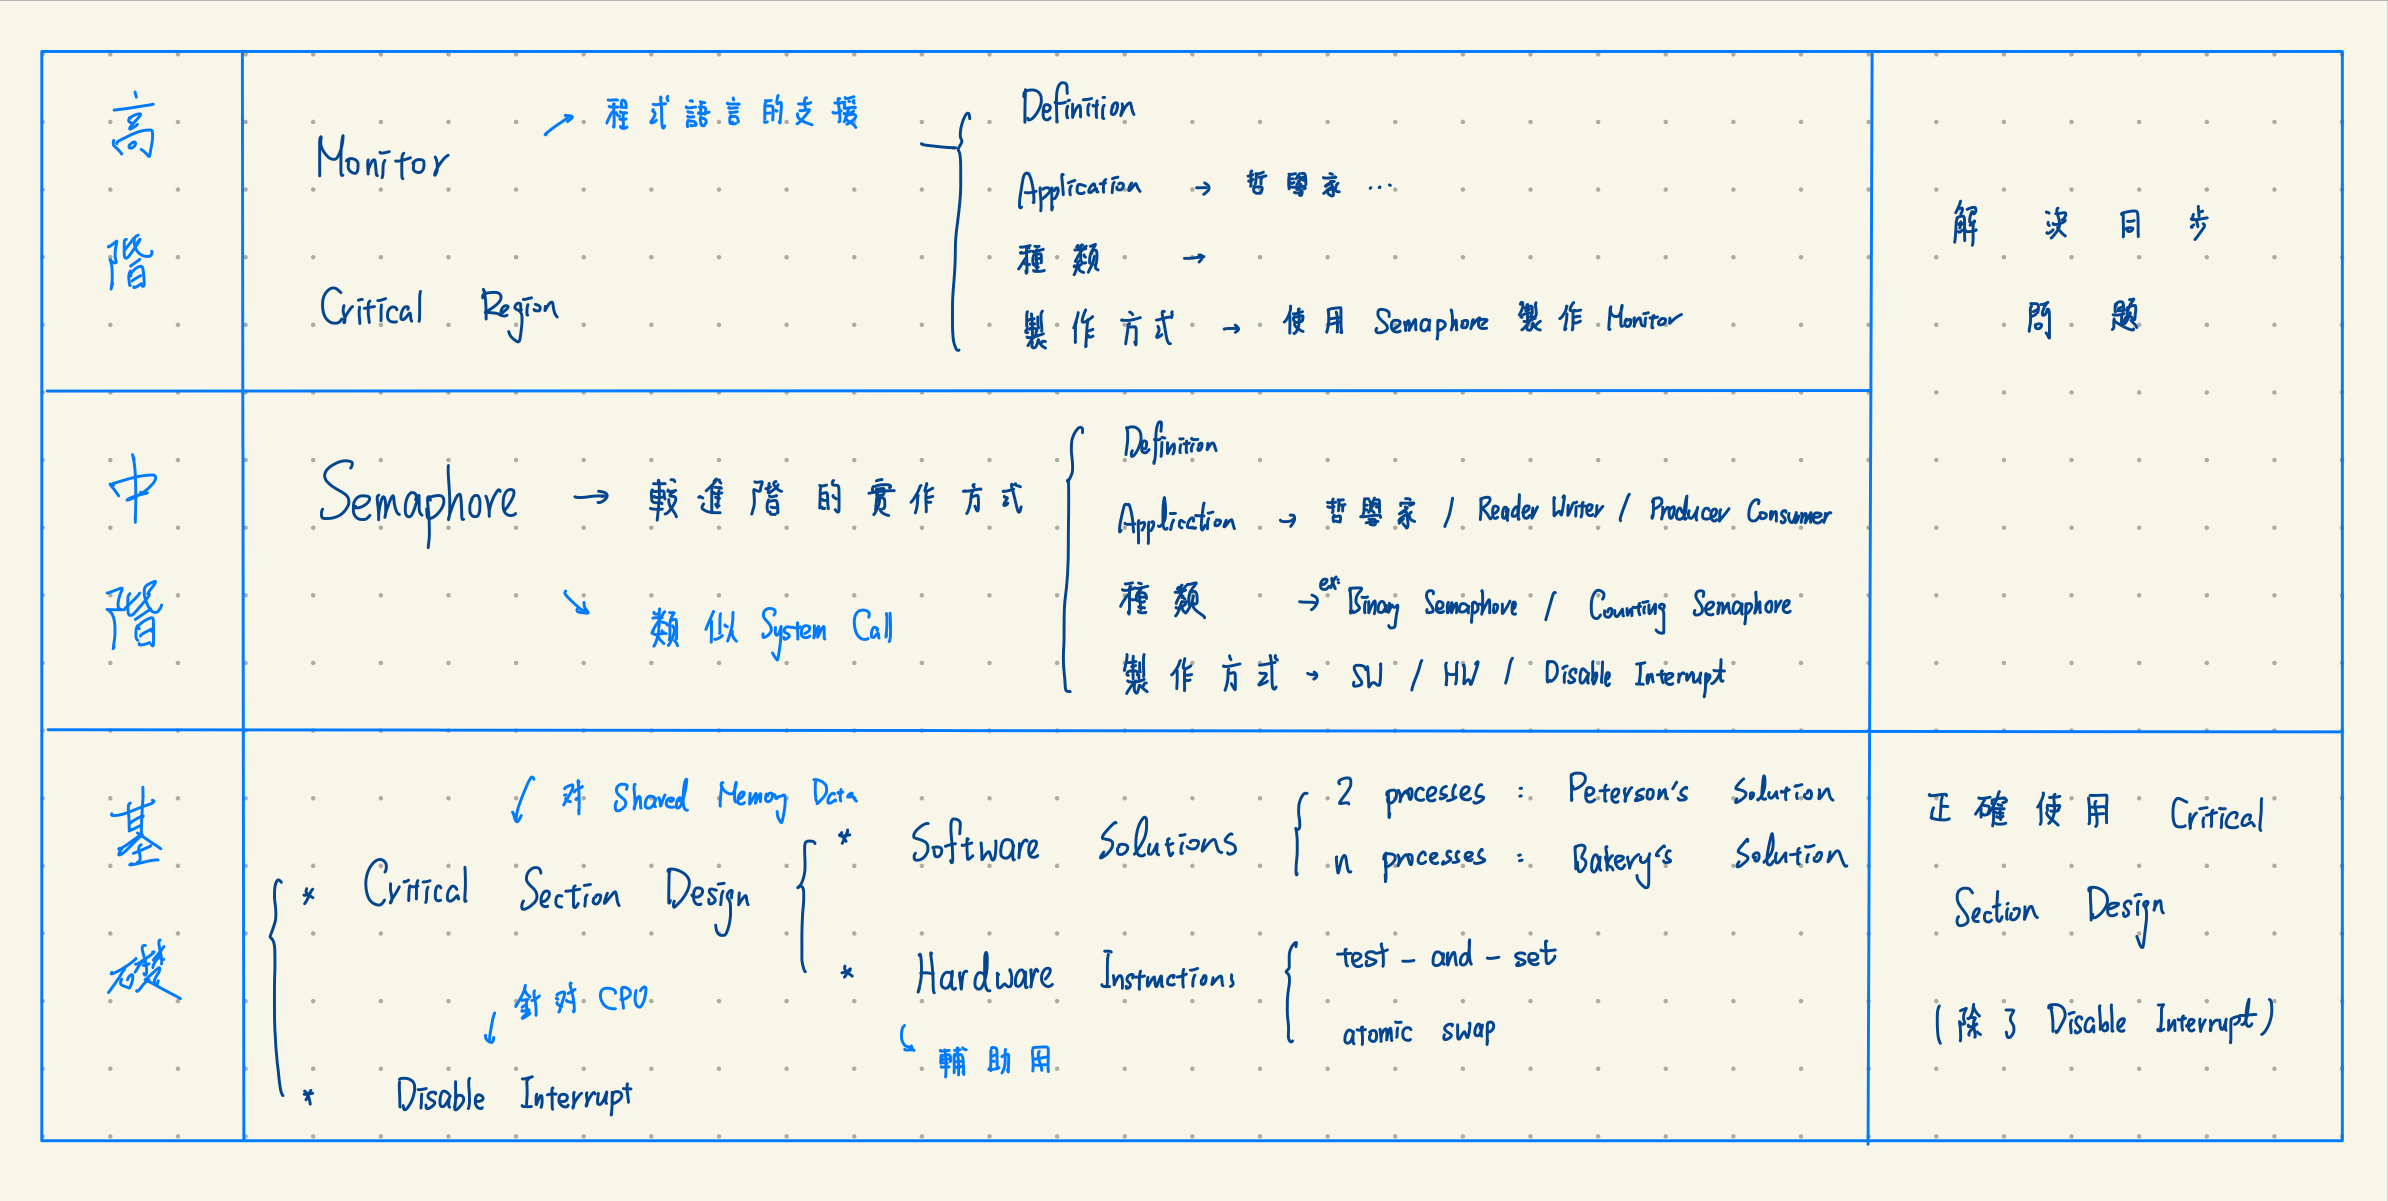 高階
Monitor
↗ 程式語言的支援
Critical Region
Definition
Application → 哲學家 ...
種類 →
製作方式 → 使用 Semaphore 製作 Monitor
解決同步
問題
中階
Semaphore → 較進階的實作方式
↘ 類似 System Call
Definition
Application → 哲學家 / Reader Writer / Producer Consumer
種類 → ex: Binary Semaphore / Counting Semaphore
製作方式 → SW / HW / Disable Interrupt
基礎
↙ 對 Shared Memory Data
* Critical Section Design
* Software Solutions
2 processes : Peterson's Solution
n processes : Bakery's Solution
* Hardware Instructions
test-and-set
atomic swap
↳ 輔助用
針對 CPU
* Disable Interrupt
正確使用 Critical
Section Design
(除了 Disable Interrupt)